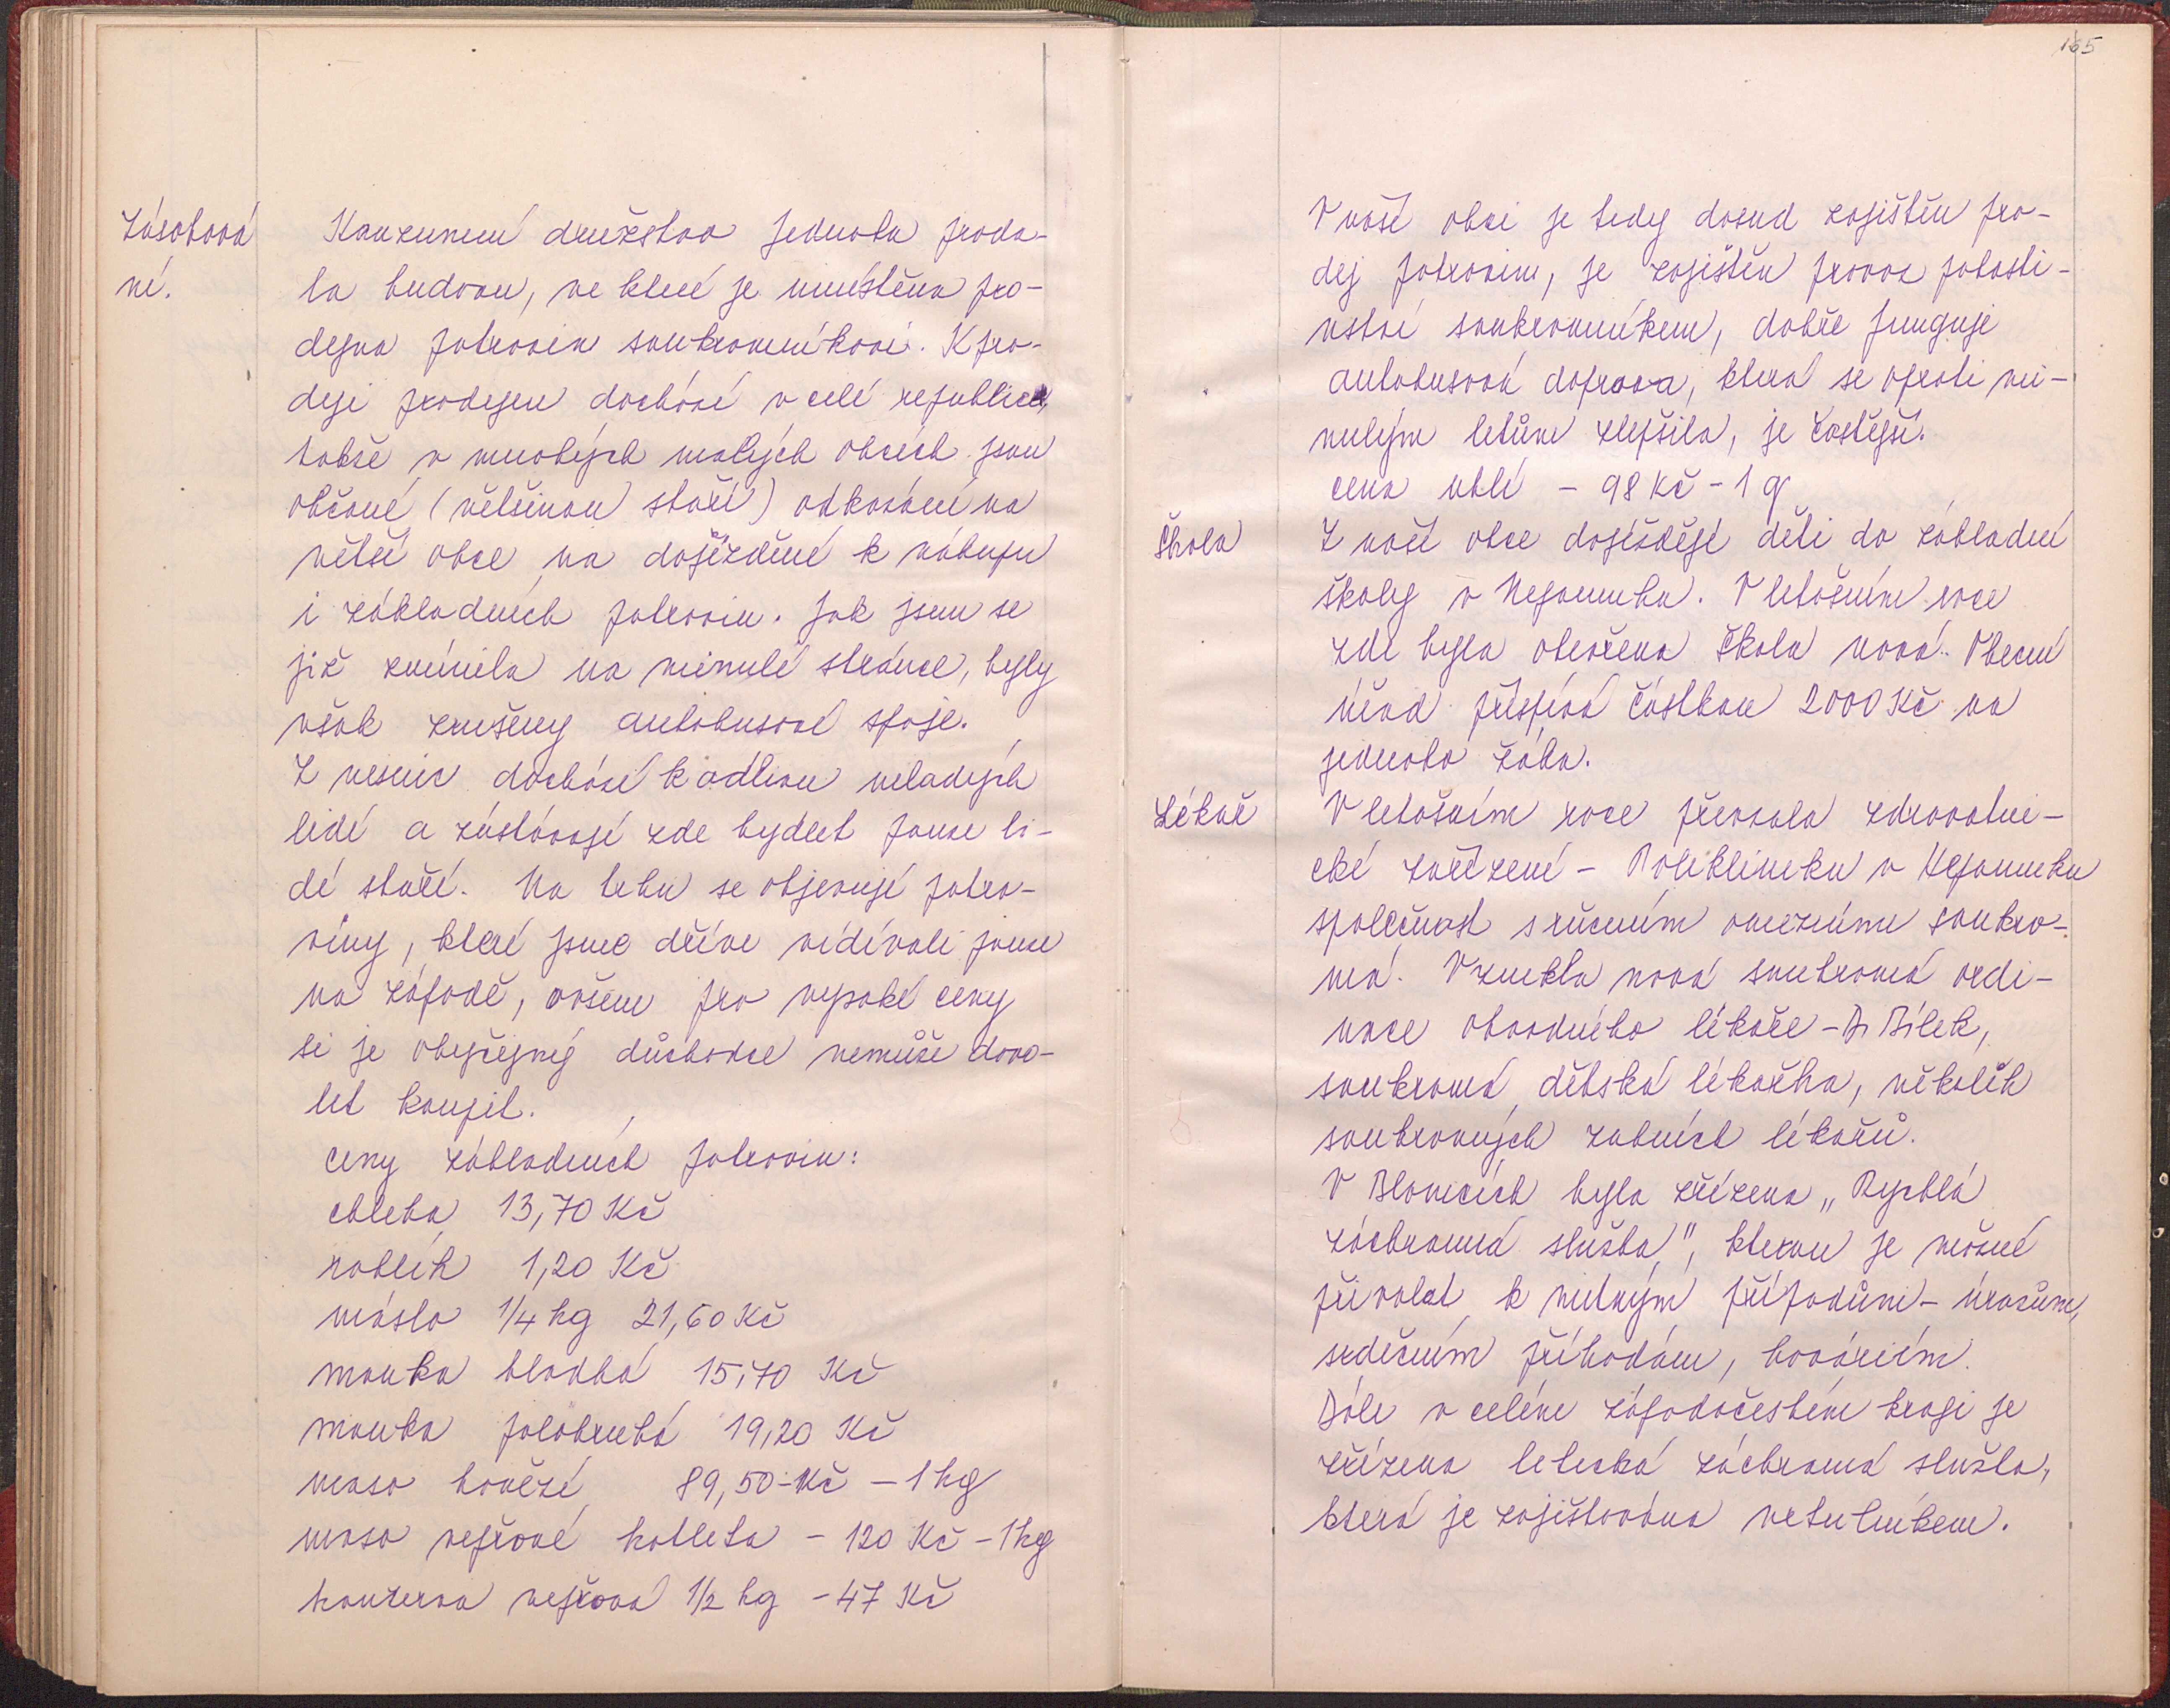 Zásobová
ní.
Konzumní družstvo Jednota proda-
la budovu, ve které je umístěna pro-
dejna potravin soukromníkovi. K pro-
deji prodejen dochází v celé republice,
takže v mnohých malých obcích jsou
občané (většinou staří) odkázáni na
větší obce na dojíždění k nákupu
i základních potravin. Jak jsem se
již zmínila na minulé stránce, byly
však zrušeny autobusové spoje.
Z vesnic dochází k odlivu mladých
lidí a zůstávají zde bydlet pouze li-
dé staří. Na trhu se objevují potra-
viny, které jsme dříve vídávali pouze
na západě, ovšem pro vysoké ceny
si je obyčejný důchodce nemůže dovo-
lit koupit.
Ceny základních potravin:
chleba 13,70 Kč
rohlík 1,20 Kč
máslo 1/4 kg 21,60 Kč
mouka hladká 15,70 Kč
mouka polohrubá 19,20 Kč
maso hovězí 89,50 - Kč - 1 kg
maso vepřové kotleta - 120 Kč - 1 kg
konzerva vepřová 1/2 kg - 47 Kč
165
V naší obci je tedy dosud zajištěn pro-
dej potravin, je zajištěn provoz pohosti-
nství soukromníkem, dobře funguje
autobusová doprava, která se oproti mi-
nulým letům zlepšila, je častější.
cena uhlí - 98 Kč - 1 q
Škola
Z naší obce dojíždějí děti do základní
školy v Nepomuku. V letošním roce
zde byla otevřena škola nová. Obecní
úřad přispívá částkou 2000 Kč na
jednoho žáka.
Lékař
V letošním roce převzala zdravotni-
cké zařízení - Polikliniku v Nepomuku
společnost s ručením omezeným soukro-
má. Vznikla nová soukromá ordi-
nace obvodního lékaře - Dr Bílek,
soukromá dětská lékařka, několik
soukromých zubních lékařů.
V Blovicích byla zřízena „Rychlá
záchranná služba", kterou je možné
přivolat k nutným případům - úrazům,
srdečním příhodám, haváriím.
Dále v celém západočeském kraji je
zřízena letecká záchranná služba,
která je zajišťována vrtulníkem.